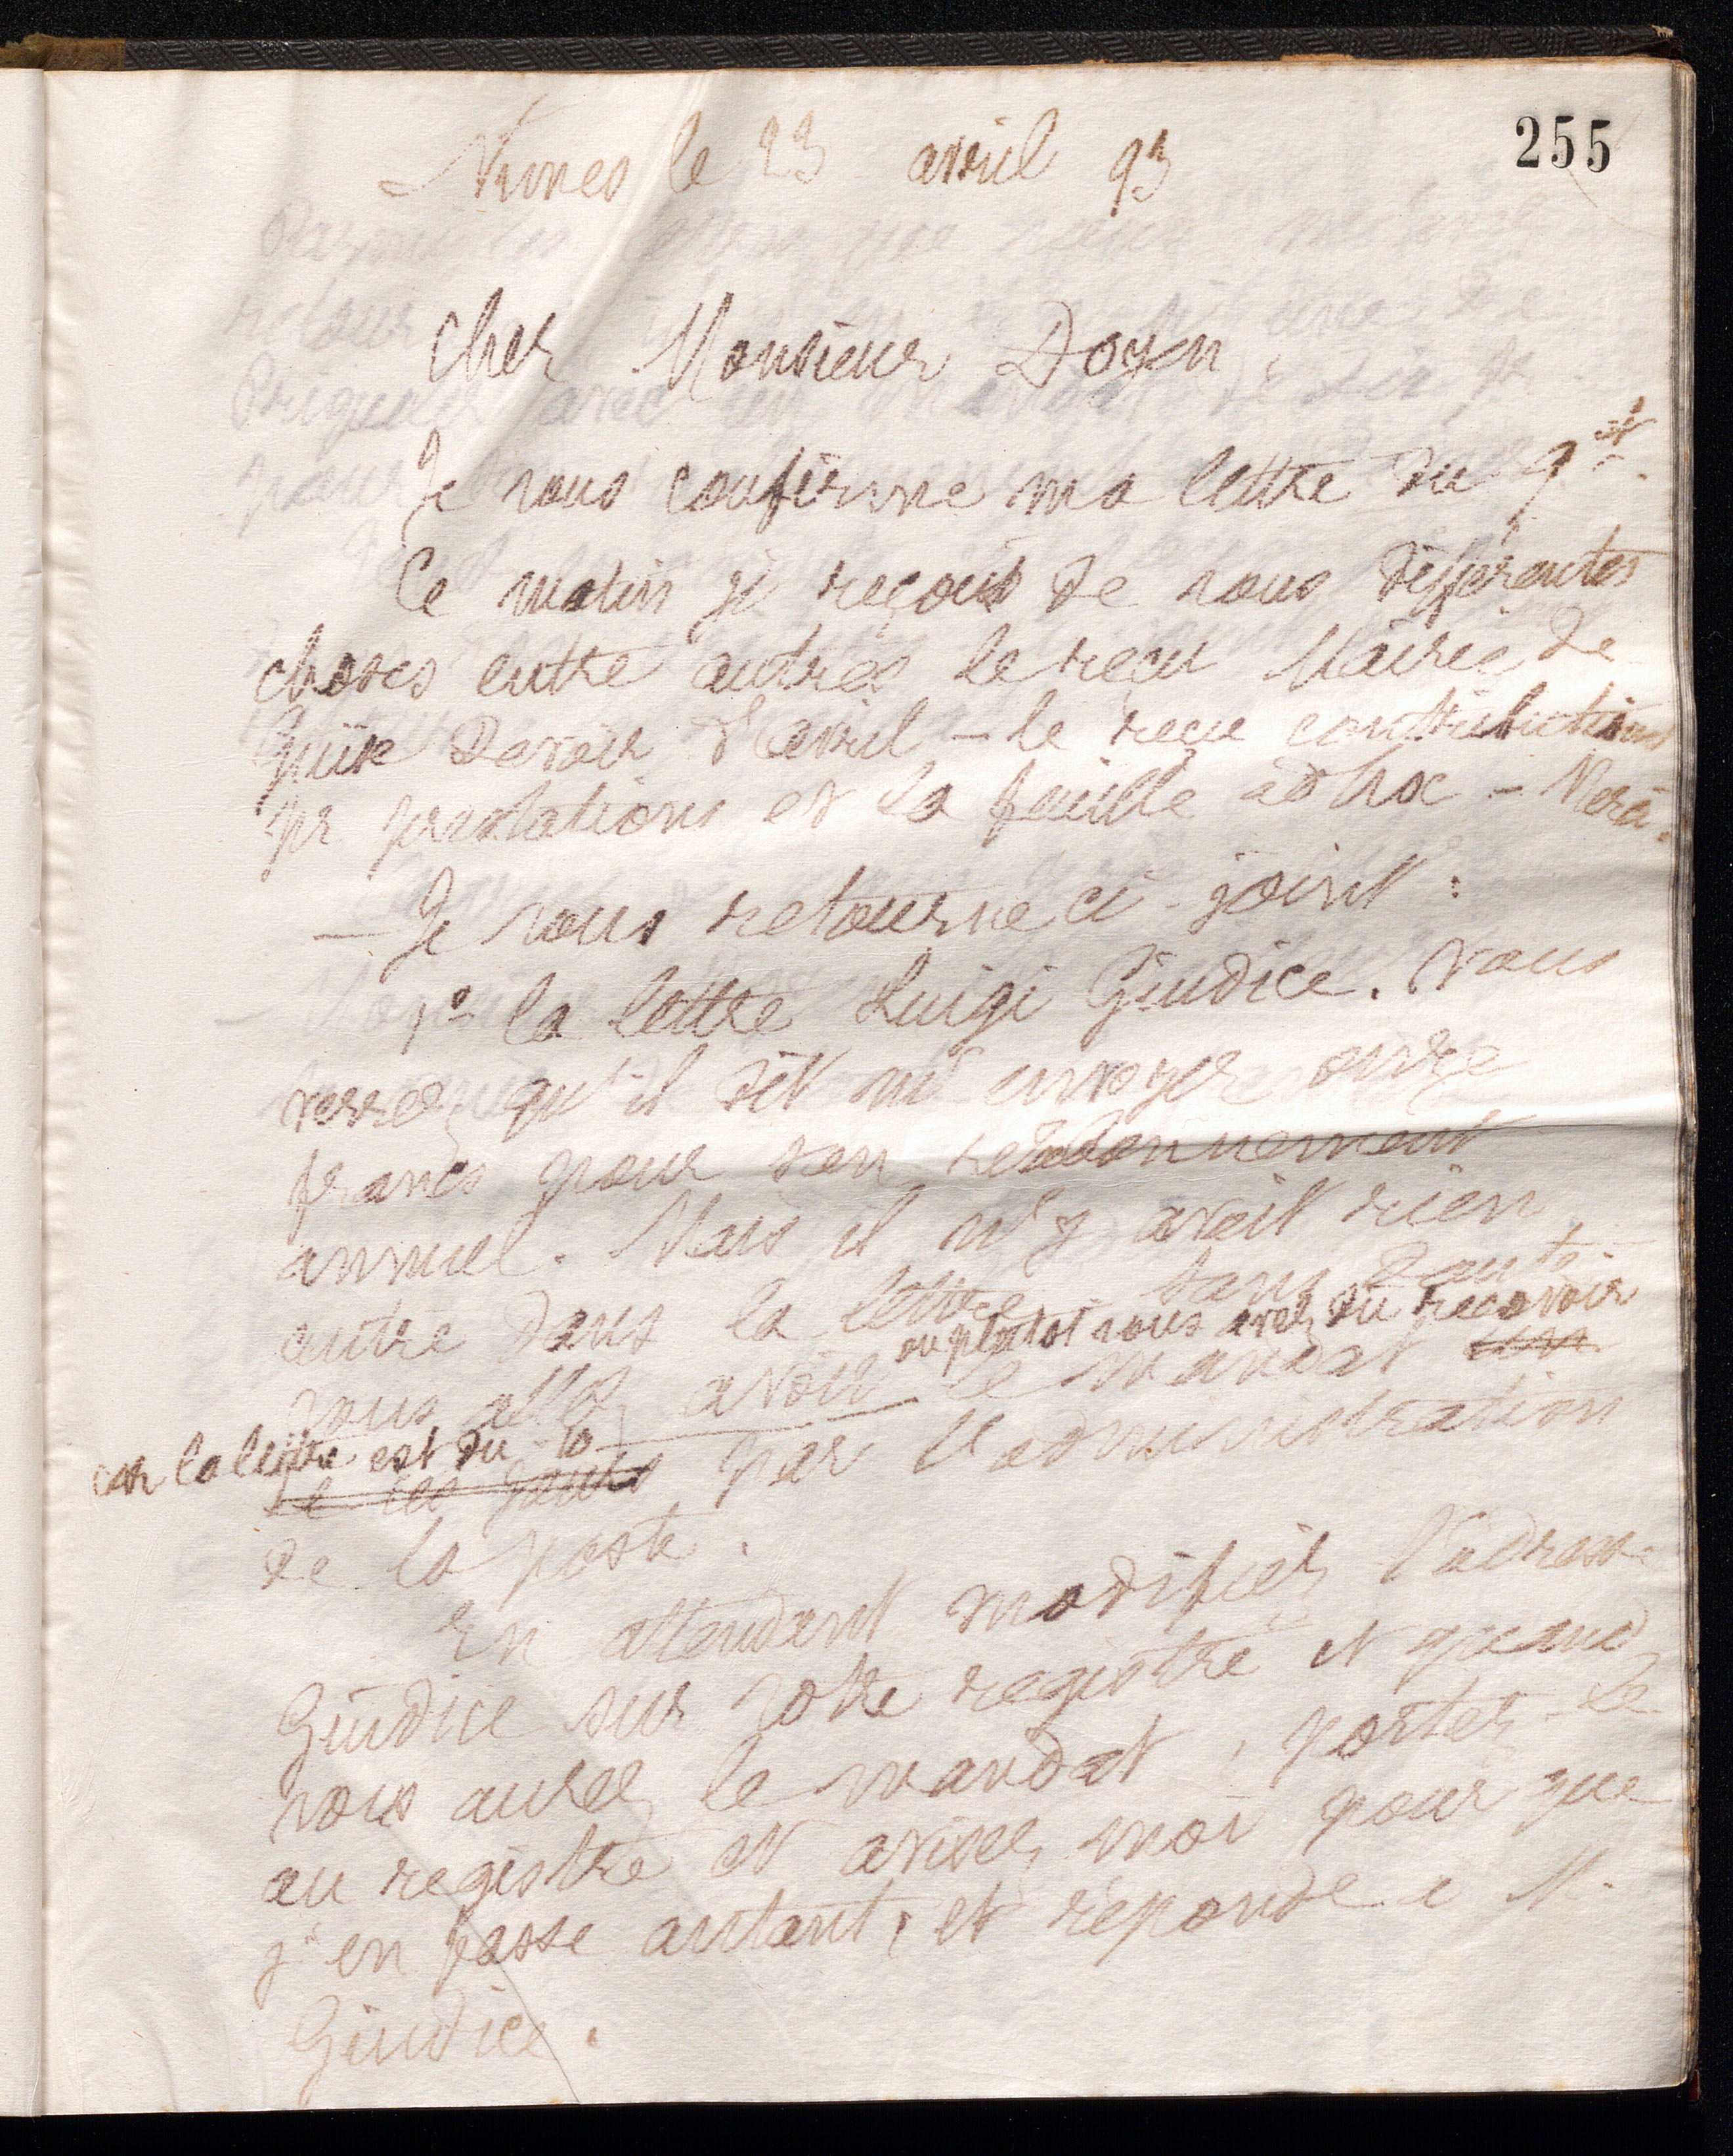 255
Nimes le 23 avril 93
Cher Monsieur Doyen,
Je vous confirme ma lettre du 9 ct.
Ce matin je reçois de vous différentes
choses entre autres le reçu Mairie de
Guise Devoir d'avril – le reçu contributions
pr prestations et la feuille ad hoc – Merci.
— Je vous retourne ci-joint :
1º la lettre Luigi Giudice. Vous
verrez qu'il dit m'envoyer onze
francs pour son réabonnement
annuel. Mais il n'y avait rien
autre dans la lettre. Sans doute
ou plutot vous avez dû recevoir
vous allez avoir le mandat
car la lettre est du 10
de ces jours par l'administration
de la poste.
En attendant modifiez l'adresse
Giudice sur votre registre et quand
vous aurez le mandat, portez-le
au registre et avisez moi pour que
j'en fasse autant, et réponde à M.
Giudice.